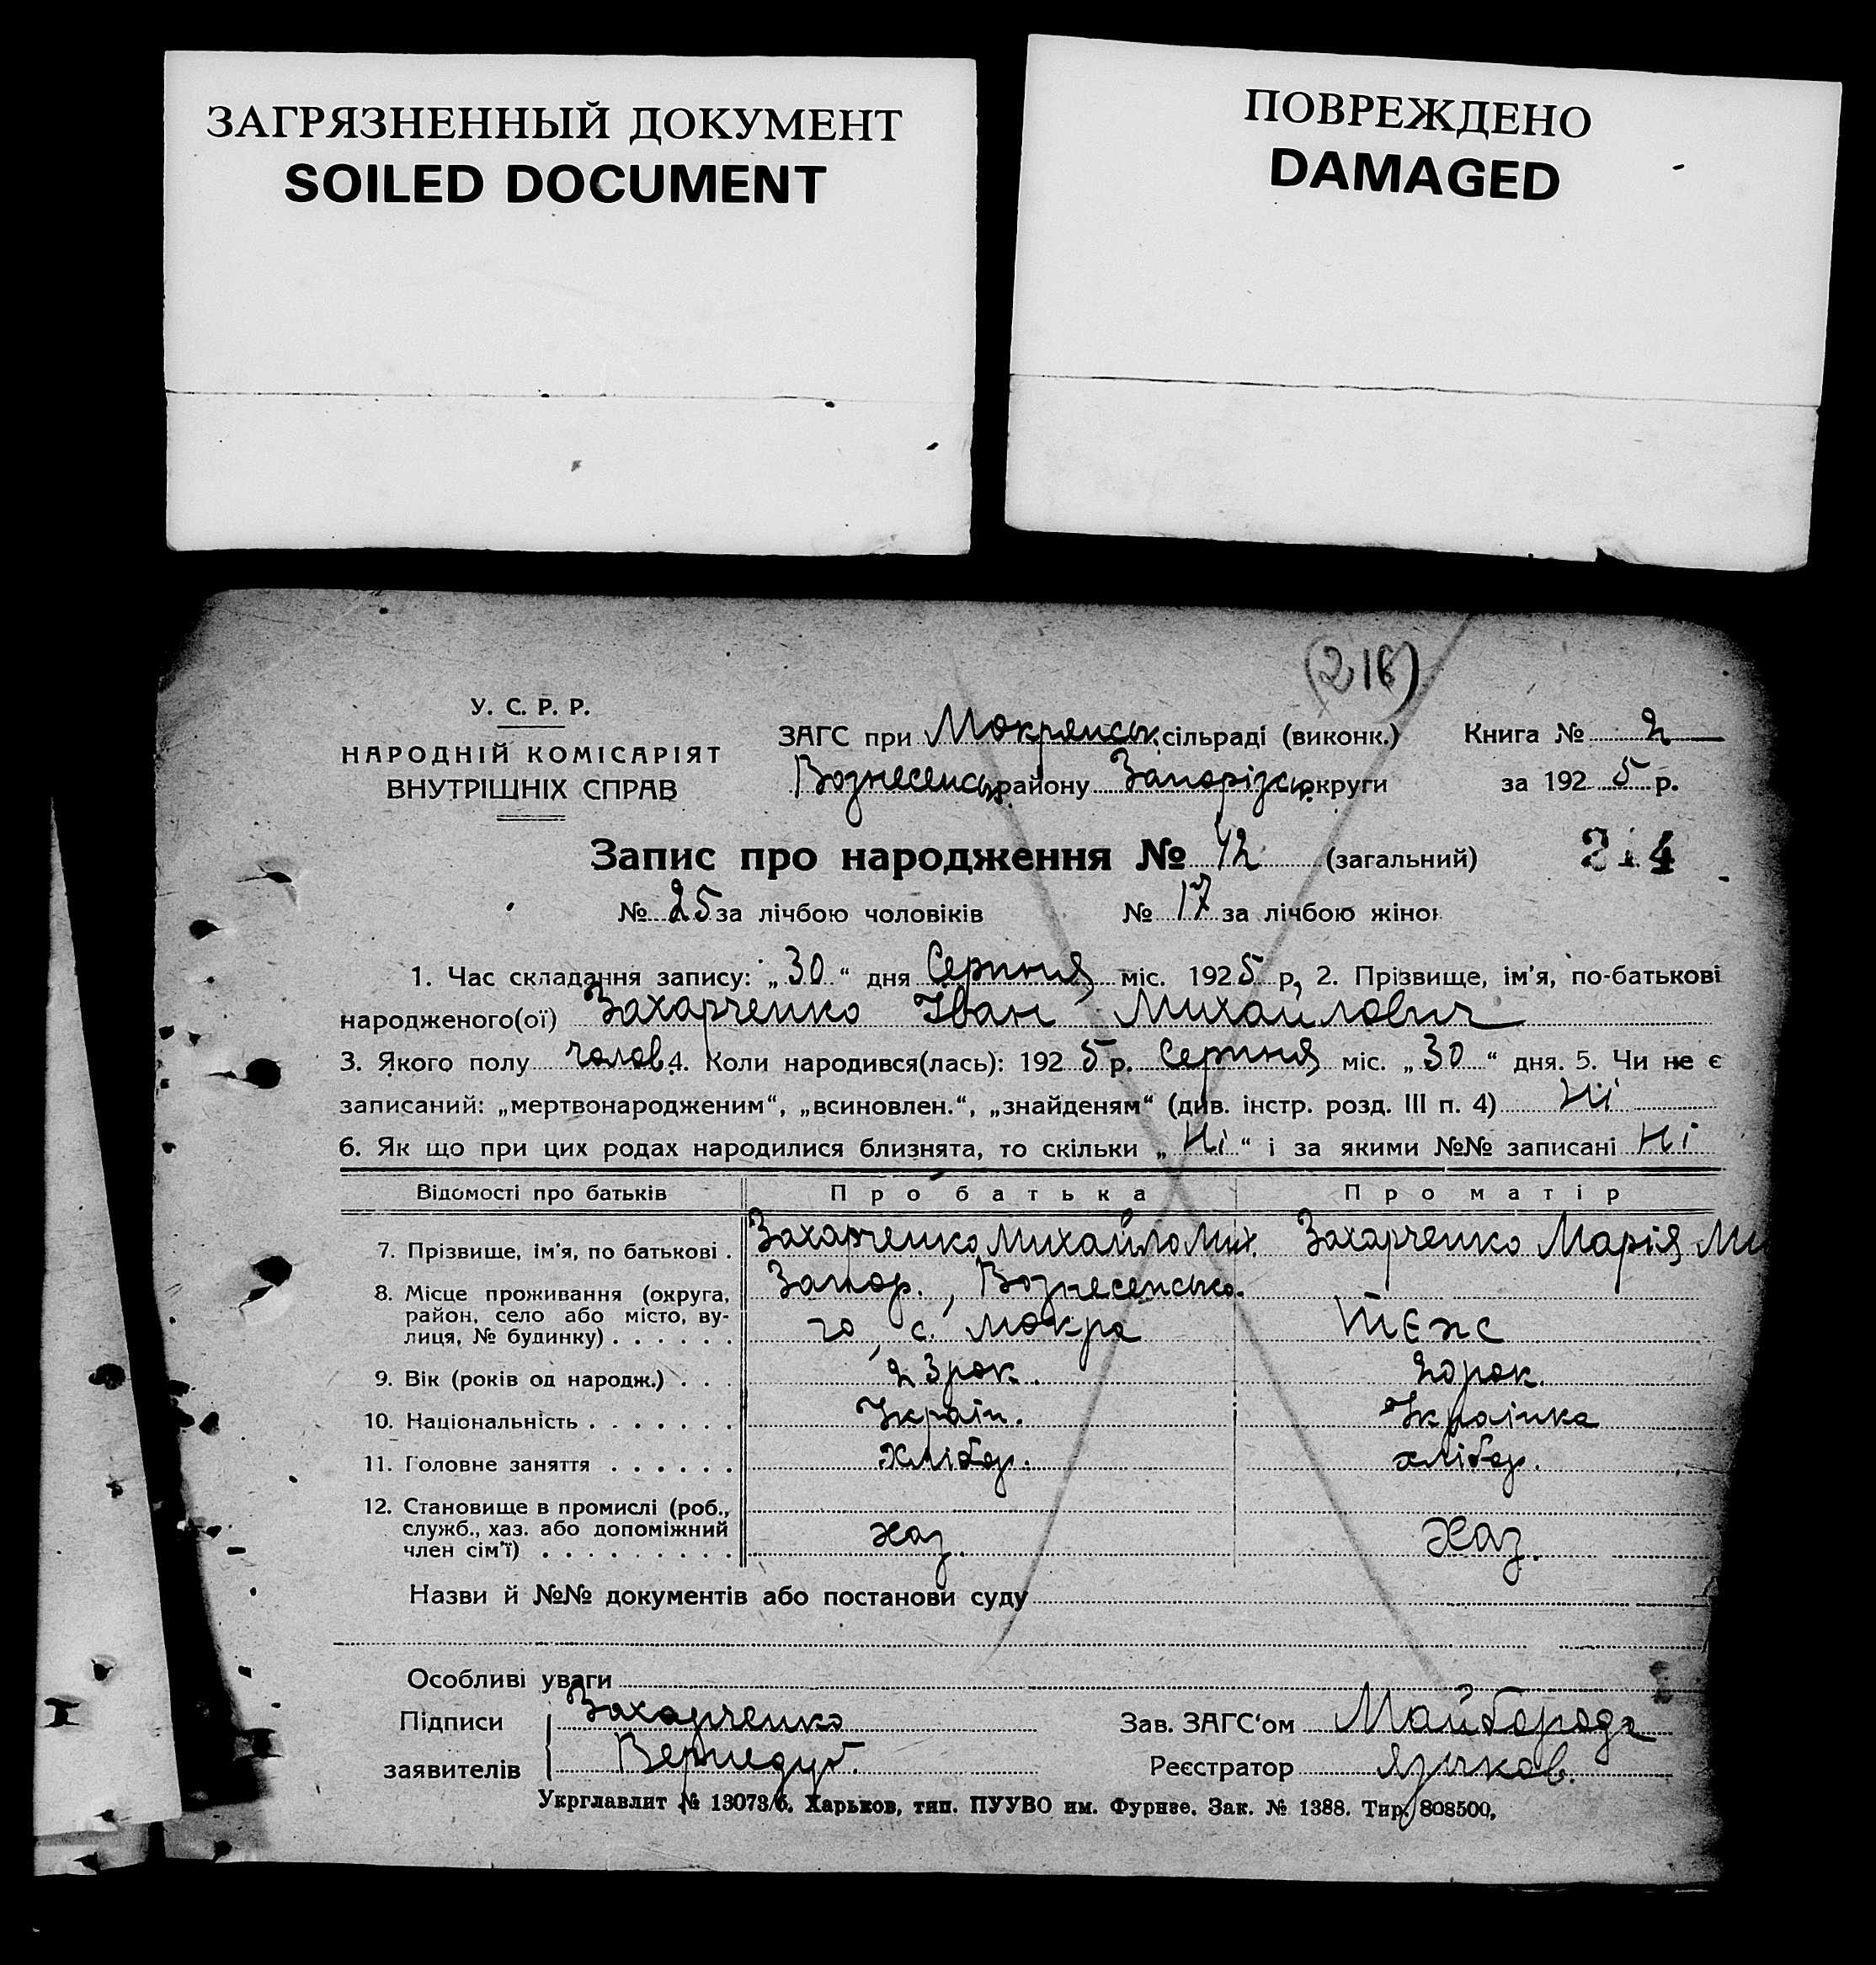 ЗАГРЯЗНЕННЫЙ ДОКУМЕНТ
SOILED DOCUMENT
ПОВРЕЖДЕНО
DAMAGED
(216)
У. С. Р. Р.
НАРОДНІЙ КОМІСАРІЯТ
ВНУТРІШНІХ СПРАВ
ЗАГС при Мокрянськ. сільраді (виконк.)
Вознесенськ. району Запорізьк. округи
Книга № 2
за 1925 р.
Запис про народження № 42 (загальний)
214
№ 25 за лічбою чоловіків № 17 за лічбою жінок
1. Час складання запису: „30“ дня Серпня міс. 1925 р, 2. Прізвище, ім'я, по-батькові
народженого(ої) Захарченко Іван Михайлович
3. Якого полу чолов 4. Коли народився(лась): 1925 р. Серпня міс. „30“ дня. 5. Чи не є
записаний: „мертвонародженим“, „всиновлен.“, „знайденям“ (див. інстр. розд. III п. 4) Ні
6. Як що при цих родах народилися близнята, то скільки „Ні“ і за якими №№ записані Ні
Відомості про батьків Про батька Про матір
7. Прізвище, ім'я, по батькові . Захарченко Михайло Мих. Захарченко Марія Ми
8. Місце проживання (округа, район, село або місто, вулиця, № будинку) . . . . . . Запор., Вознесенсько-
го, с. Мокра тєж
9. Вік (років од народж.) . . . 23 рок. 20 рок.
10. Національність . . . . . . . Україн. Українка
11. Головне заняття . . . . . . хлібор. хлібор.
12. Становище в промислі (роб., служб., хаз. або допоміжний член сім'ї) . . . . . . . . . хаз. Хаз.
Назви й №№ документів або постанови суду
Особливі уваги
Підписи Захарченко
заявителів Вернедуб.
Зав. ЗАГС'ом Майборода
Реєстратор Язиков.
Укрглавлит № 13073/б. Харьков, тип. ПУУВО им. Фрунзе. Зак. № 1388. Тир. 808500,